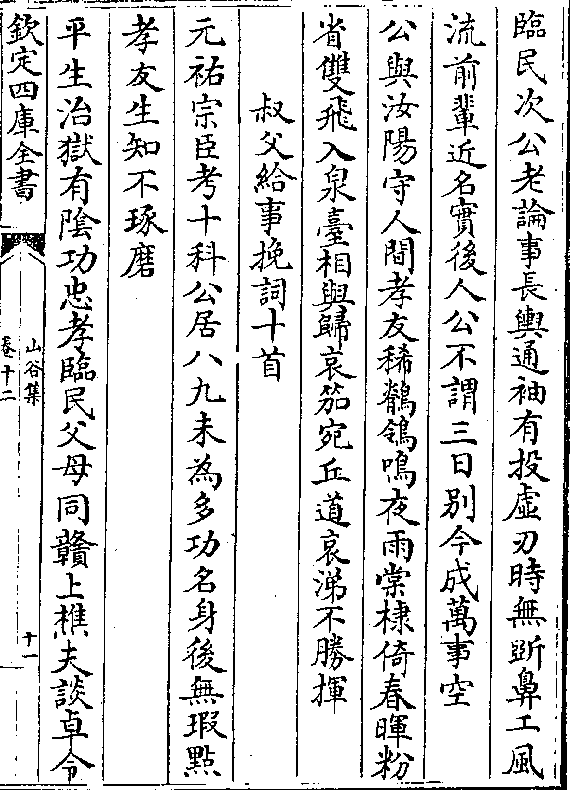 臨民次公老論事長輿通袖有投虛刃時無斲鼻工風
流前輩近名實後人公不謂三日别今成萬事空
公與汝陽守人間孝友稀鶺鴒鳴夜雨棠棣倚春暉粉
省雙飛入泉臺相與歸哀笳宛丘道哀涕不勝揮
叔父給事挽詞十首
元祐宗臣考十科公居八九未為多功名身後無瑕㸃
孝友生知不琢磨
平生治獄有隂功忠孝臨民父母同贛上樵夫談卓令
欽定四庫全書
山谷集
卷十二
十一